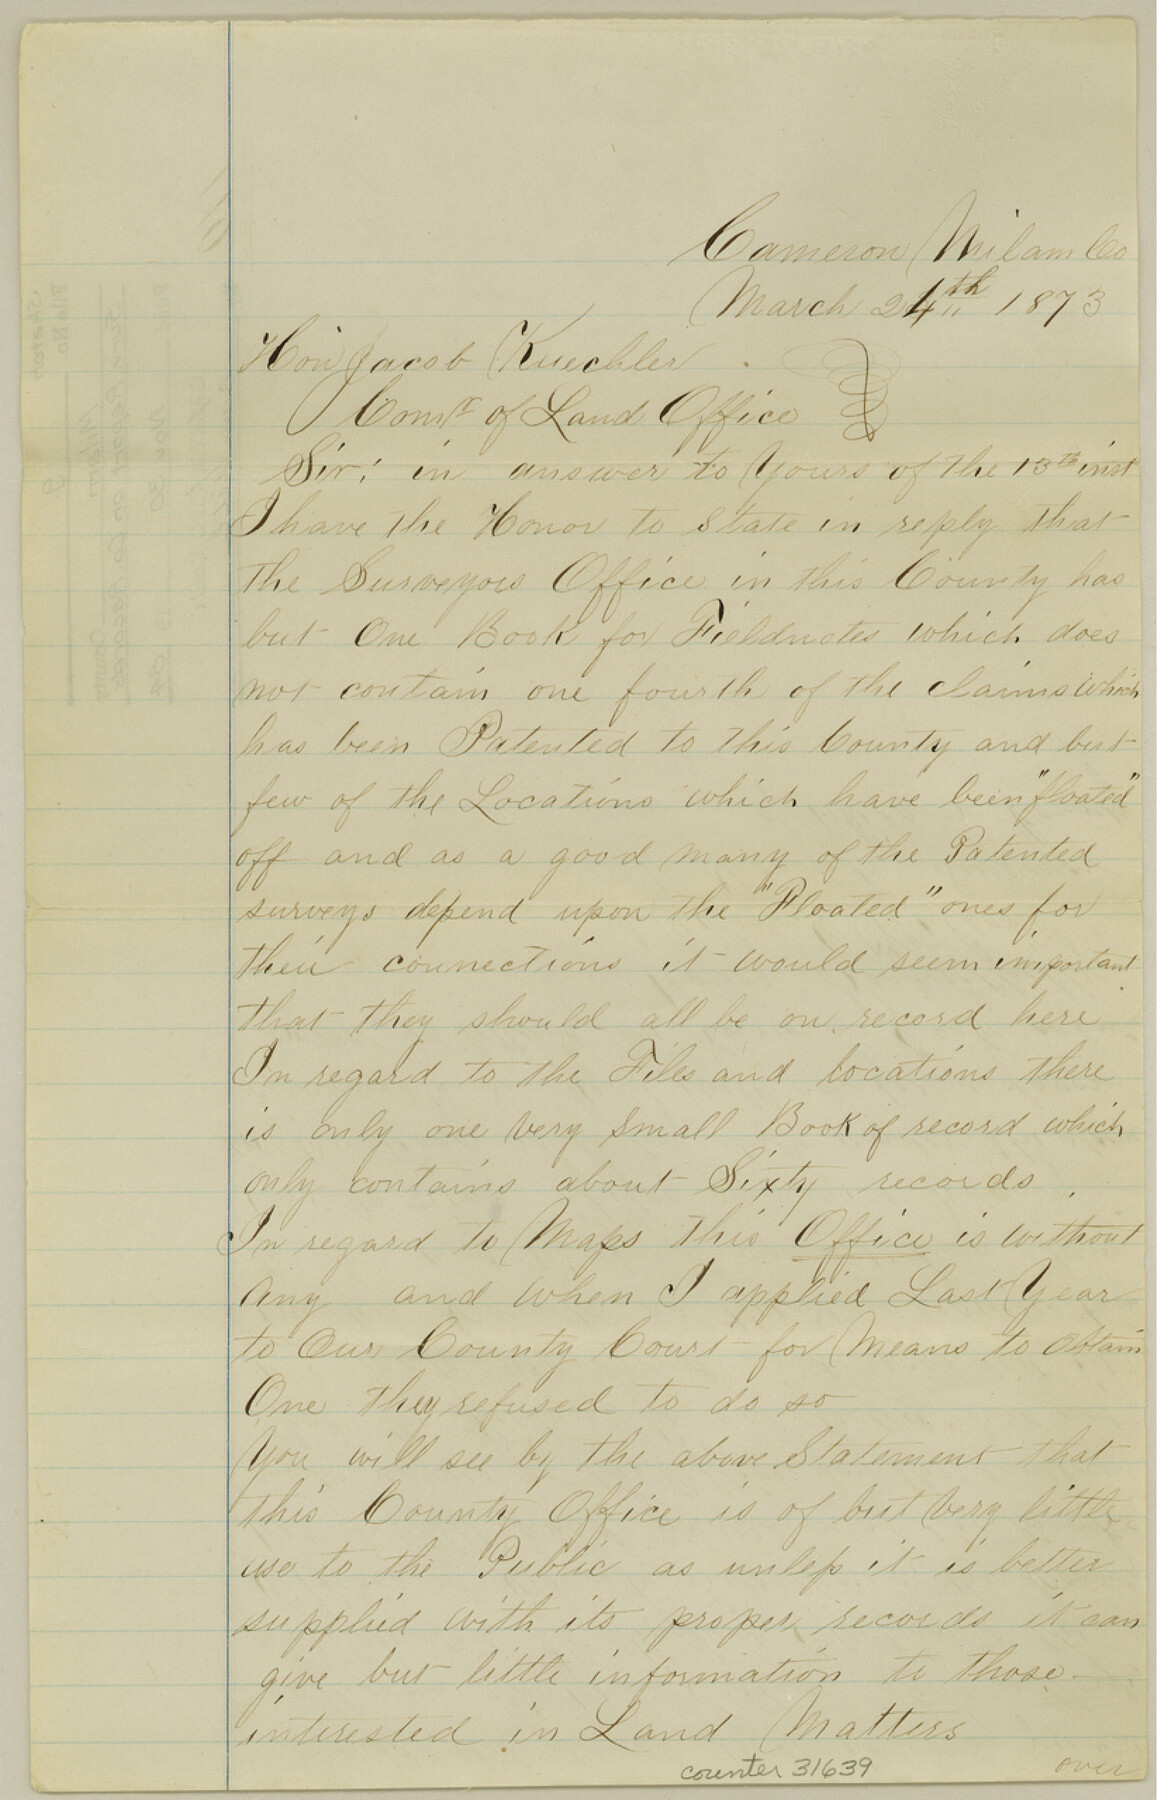 Cameron Milam Co
March 24th 1873
Hon Jacob Kuechler
Comr of Land Office
Sir; in answer to Yours of the 13th inst
I have the Honor to State in reply that
the Surveyors Office in this County has
but One Book for Fieldnotes which does
not contain one fourth of the claims which
has been Patented to this County and but
few of the Locations which have been "floated"
off and as a good many of the Patented
surveys depend upon the "Floated" ones for
their connections it would seem important
that they should all be on record here
In regard to the Files and locations there
is only one very small Book of record which
only contains about Sixty records.
In regard to Maps this Office is without
any and when I applied Last Year
to Our County Court for Means to obtain
One they refused to do so
You will see by the above Statement that
this County Office is of but very little
use to the Public as unless it is better
supplied with its proper records it can
give but little information to those
interested in Land Matters
counter 31639
over